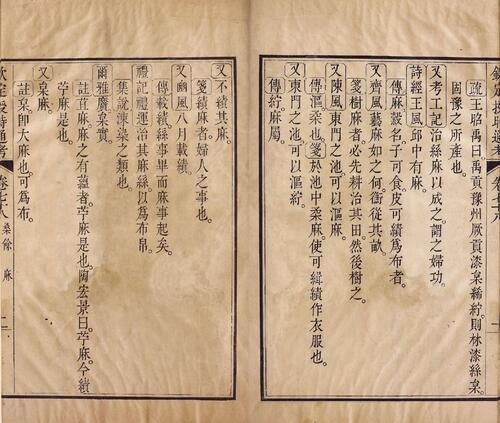 疏王昭禹曰禹貢豫州厥貢漆枲絺紵。則林漆絲枲。
固豫之所產也
又考工記治絲麻以成之。謂之婦功。
詩經王風邱中有麻。
傳麻穀名子可食皮可績爲布者。
又齊風蓺麻如之何。衡從其畝。
箋樹麻者必先耕治其田。然後樹之。
又陳風東門之池。可以漚麻。
傳漚柔也。箋於池中柔麻。使可緝績作衣服也。
又東門之池。可以漚紵。
傳紵麻屬。
又不績其麻。
箋績麻者婦人之事也。
又豳風八月載績。
傳載績絲事畢而麻事起矣。
禮記禮運治其麻絲以爲布帛。
集說湅染之類也。
爾雅廣枲實。
註苴麻。麻之有蘊者。苧麻是也。陶宏景曰苧麻。今績
苧麻是也。
又枲麻。
註枲卽大麻也。可爲布。
欽定授時通考 卷七十八 桑餘 麻 二